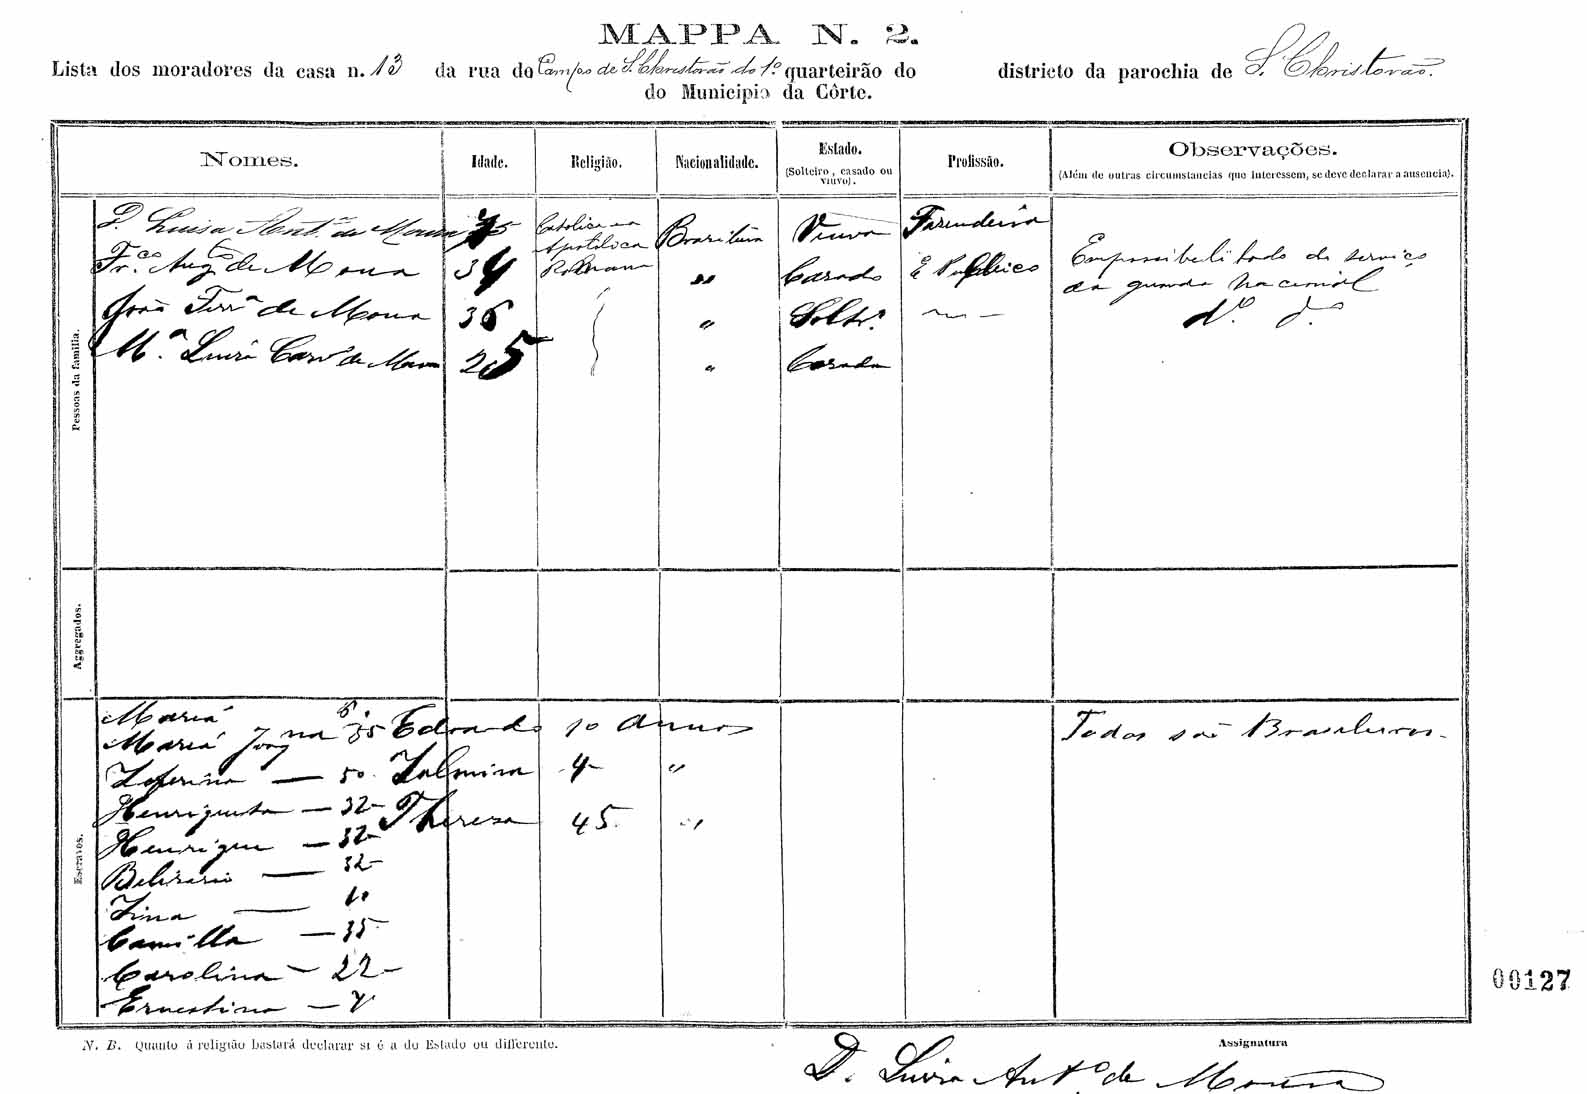 MAPPA N. 2.
Lista dos moradores da casa n. 13 da rua do Campo de S. Christovão do 1º quarteirão do districto da parochia de S. Christovão.
do Municipio da Côrte.
Nomes. Idade. Religião. Nacionalidade. Estado. (Solteiro, casado ou viuvo). Profissão. Observações. (Além de outras circumstancias que interessem, se deve declarar a ausencia).
Pessoas da familia.
D. Luisa Antª de Moura 75 Catholica Apostolica Romana Brasileira Viuva Fazendeira
Frco Augto de Moura 34 " Casado E Publico Empossibelitado do serviço da guarda nacional
João Ferrª de Moura 36 " Soltrº dº dº
Mª Luisa Carvº de Moura 25 " Casada
Aggregados.
Escravos.
Maria 6 Todos são Brasileiros.
Maria Joaqna 35 Edoardo 10 annos
Zeferina — 50 Zulmira 4 "
Henriqueta — 32 Thereza 45 "
Henrique — 32
Belizario — 32
Lina — 10
Camilla — 35
Carolina — 22
Ernestina — 7
00127
N. B. Quanto á religião bastará declarar si é a do Estado ou differente.
Assignatura
D. Luisa Antª de Moura